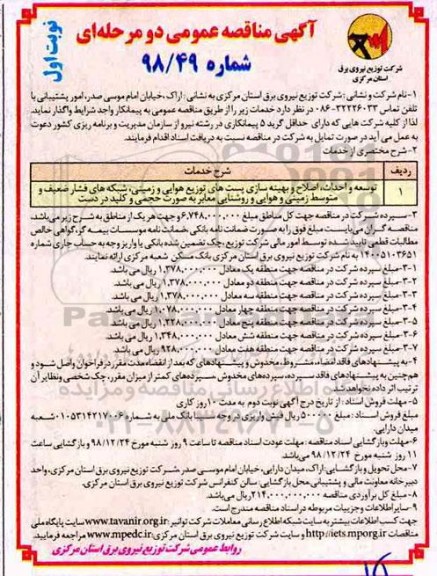 نوبت اول
آگهی مناقصه عمومی دو مرحله‌ای
شماره ۹۸/۴۹
شرکت توزیع نیروی برق
استان مرکزی
۱- نام شرکت و نشانی: شرکت توزیع نیروی برق استان مرکزی به نشانی: اراک، خیابان امام موسی صدر، امور پشتیبانی با
تلفن تماس ۳۲۲۲۶۰۳۳-۰۸۶ در نظر دارد خدمات زیر را از طریق مناقصه عمومی به پیمانکار واجد شرایط واگذار نماید.
لذا از کلیه شرکت هایی که دارای حداقل گرید ۵ پیمانکاری در رشته نیرو از سازمان مدیریت و برنامه ریزی کشور دعوت
به عمل می آید در صورت تمایل به شرکت در مناقصه نسبت به دریافت اسناد اقدام فرمایند.
۲- شرح مختصری از خدمات
ردیف شرح خدمات
۱ توسعه و احداث، اصلاح و بهینه سازی پست های توزیع هوایی و زمینی، شبکه های فشار ضعیف و
متوسط زمینی و هوایی و روشنایی معابر به صورت حجمی و کلید در دست
۳- سپرده شرکت در مناقصه جهت کل مناطق مبلغ ۶,۷۴۸,۰۰۰,۰۰۰ و جهت هر یک از مناطق به شرح زیر می‌باشد.
مناقصه گران می‌بایست مبلغ فوق را به صورت ضمانت نامه بانکی، ضمانت نامه موسسات بیمه گر، گواهی خالص
مطالبات قطعی تایید شده توسط امور مالی شرکت توزیع، چک تضمین شده بانکی یا واریز وجه به حساب جاری شماره
۱۴۰۰۵۱۰۳۶۵۱ به نام شرکت توزیع نیروی برق استان مرکزی بانک مسکن شعبه مرکزی ارائه نمایند.
۳-۱- مبلغ سپرده شرکت در مناقصه جهت منطقه یک معادل ۱,۳۷۸,۰۰۰,۰۰۰ ریال می باشد.
۳-۲- مبلغ سپرده شرکت در مناقصه جهت منطقه دو معادل ۱,۳۷۸,۰۰۰,۰۰۰ ریال می باشد.
۳-۳- مبلغ سپرده شرکت در مناقصه جهت منطقه سه معادل ۱,۳۷۸,۰۰۰,۰۰۰ ریال می باشد.
۳-۴- مبلغ سپرده شرکت در مناقصه جهت منطقه چهار معادل ۱,۰۷۸,۰۰۰,۰۰۰ ریال می باشد.
۳-۵- مبلغ سپرده شرکت در مناقصه جهت منطقه پنج معادل ۱,۲۲۸,۰۰۰,۰۰۰ ریال می باشد.
۳-۶- مبلغ سپرده شرکت در مناقصه جهت منطقه شش معادل ۱,۳۴۸,۰۰۰,۰۰۰ ریال می باشد.
۳-۷- مبلغ سپرده شرکت در مناقصه جهت منطقه هفت معادل ۹۲۸,۰۰۰,۰۰۰ ریال می باشد.
۴- به پیشنهادهای فاقد امضاء، مشروط، مخدوش و پیشنهادهای که بعد از انقضاء مدت مقرر در فراخوان واصل شود و
هم‌چنین به پیشنهادهای فاقد سپرده، سپرده‌های مخدوش، سپرده‌های کمتر از میزان مقرر، چک شخصی و نظایر آن
ترتیب اثر داده نخواهد شد.
۵- مهلت فروش اسناد: از تاریخ درج آگهی نوبت دوم به مدت ۱۰ روز کاری
مبلغ فروش اسناد: مبلغ ۵۰۰۰۰۰ ریال فیش واریزی در وجه سیبا بانک ملی به شماره ۰۱۰۵۳۱۴۲۱۷۰۰۶ شعبه
میدان دارایی.
۶- مهلت و بازگشایی اسناد مناقصه: مهلت عودت اسناد مناقصه تا ساعت ۹ روز شنبه مورخ ۹۸/۱۲/۲۴ و بازگشایی ساعت
۱۱ روز شنبه مورخ ۹۸/۱۲/۲۴ می باشد.
۷- محل تحویل و بازگشایی: اراک، میدان دارایی، خیابان امام موسی صدر شرکت توزیع نیروی برق استان مرکزی، واحد
دبیرخانه معاونت مالی و پشتیبانی، محل بازگشایی: سالن کنفرانس شرکت توزیع نیروی برق استان مرکزی.
۸- مبلغ کل برآوردی مناقصه ۲۱۴,۰۰۰,۰۰۰,۰۰۰ ریال می‌باشد.
۹- سایر اطلاعات و جزییات مربوطه در اسناد مناقصه مندرج است.
جهت کسب اطلاعات بیشتر به سایت شبکه اطلاع رسانی معاملات شرکت توانیر www.tavanir.org.ir سایت پایگاه ملی
مناقصات http://iets.mporg.ir و سایت شرکت توزیع نیروی برق استان مرکزی www.mpedc.ir مراجعه فرمایید.
روابط عمومی شرکت توزیع نیروی برق استان مرکزی